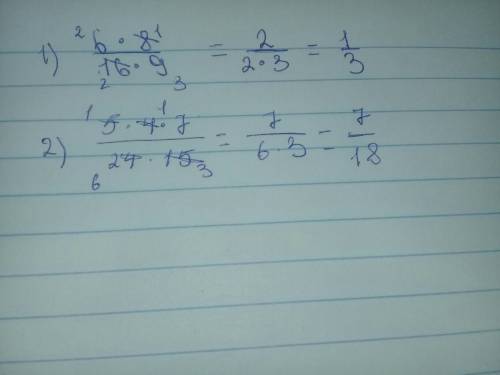 1) ²6 · 8¹ / 16₂ · 9₃ = 2 / 2·3 = 1 / 3
2) ¹5 · 4¹ · 7 / 24₆ · 15₃ = 7 / 6·3 = 7 / 18